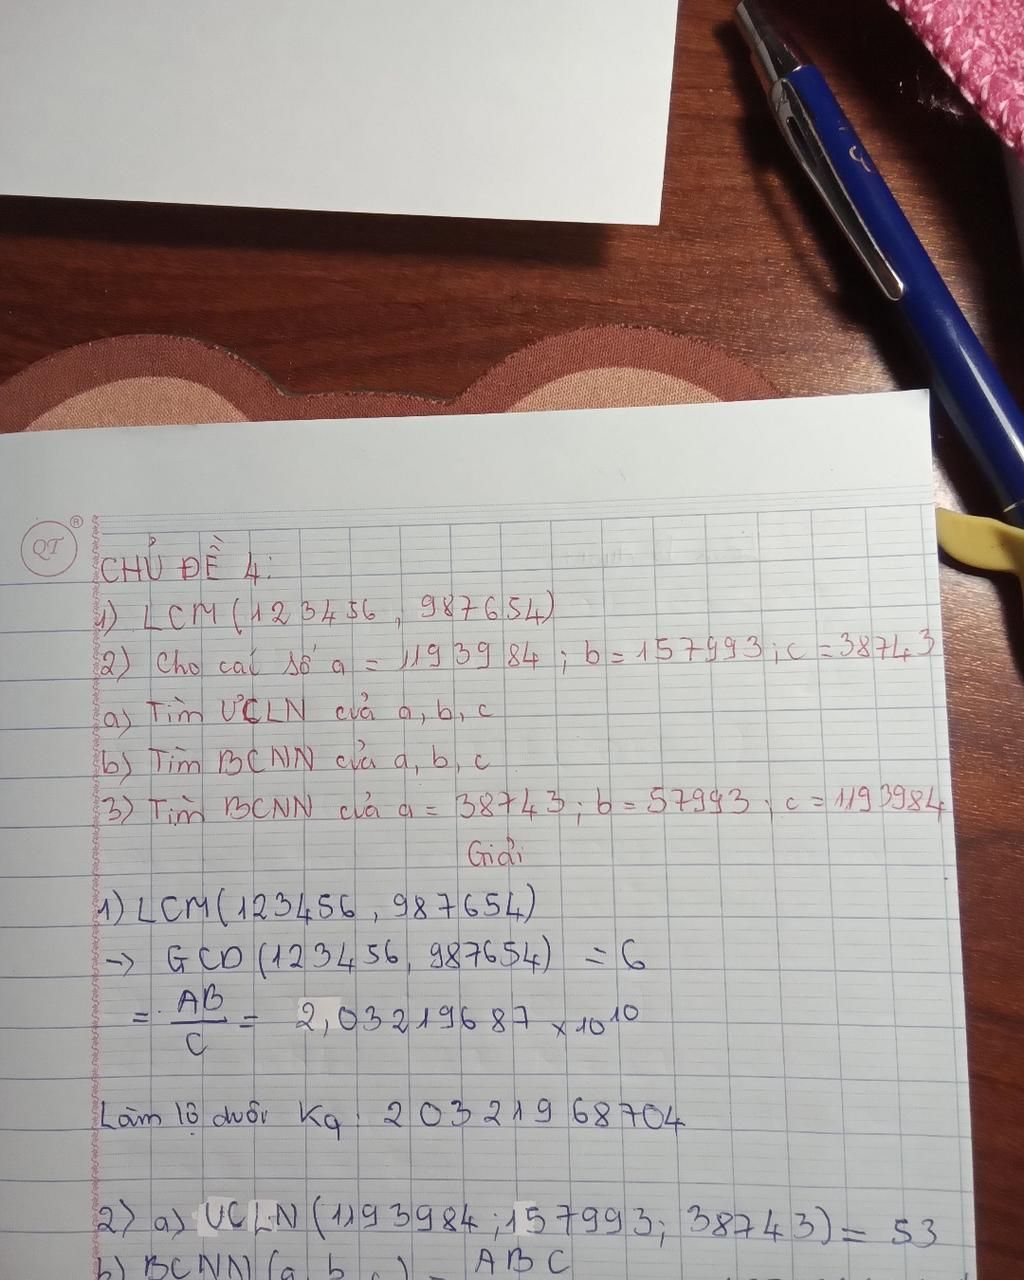 QT ®
CHỦ ĐỀ 4:
1) LCM (123456, 987654)
2) Cho các số a = 1193984; b = 157993; c = 38743
a) Tìm ƯCLN của a, b, c
b) Tìm BCNN của a, b, c
3) Tìm BCNN của a = 38743; b = 57993; c = 1193984
Giải
1) LCM (123456, 987654)
→ GCD (123456, 987654) = 6
= AB/C = 2,03219687 × 10^10
Làm lộ đuôi Kq: 20321968704
2) a) ƯCLN (1193984; 157993; 38743) = 53
b) BCNN (a, b, c) = ABC